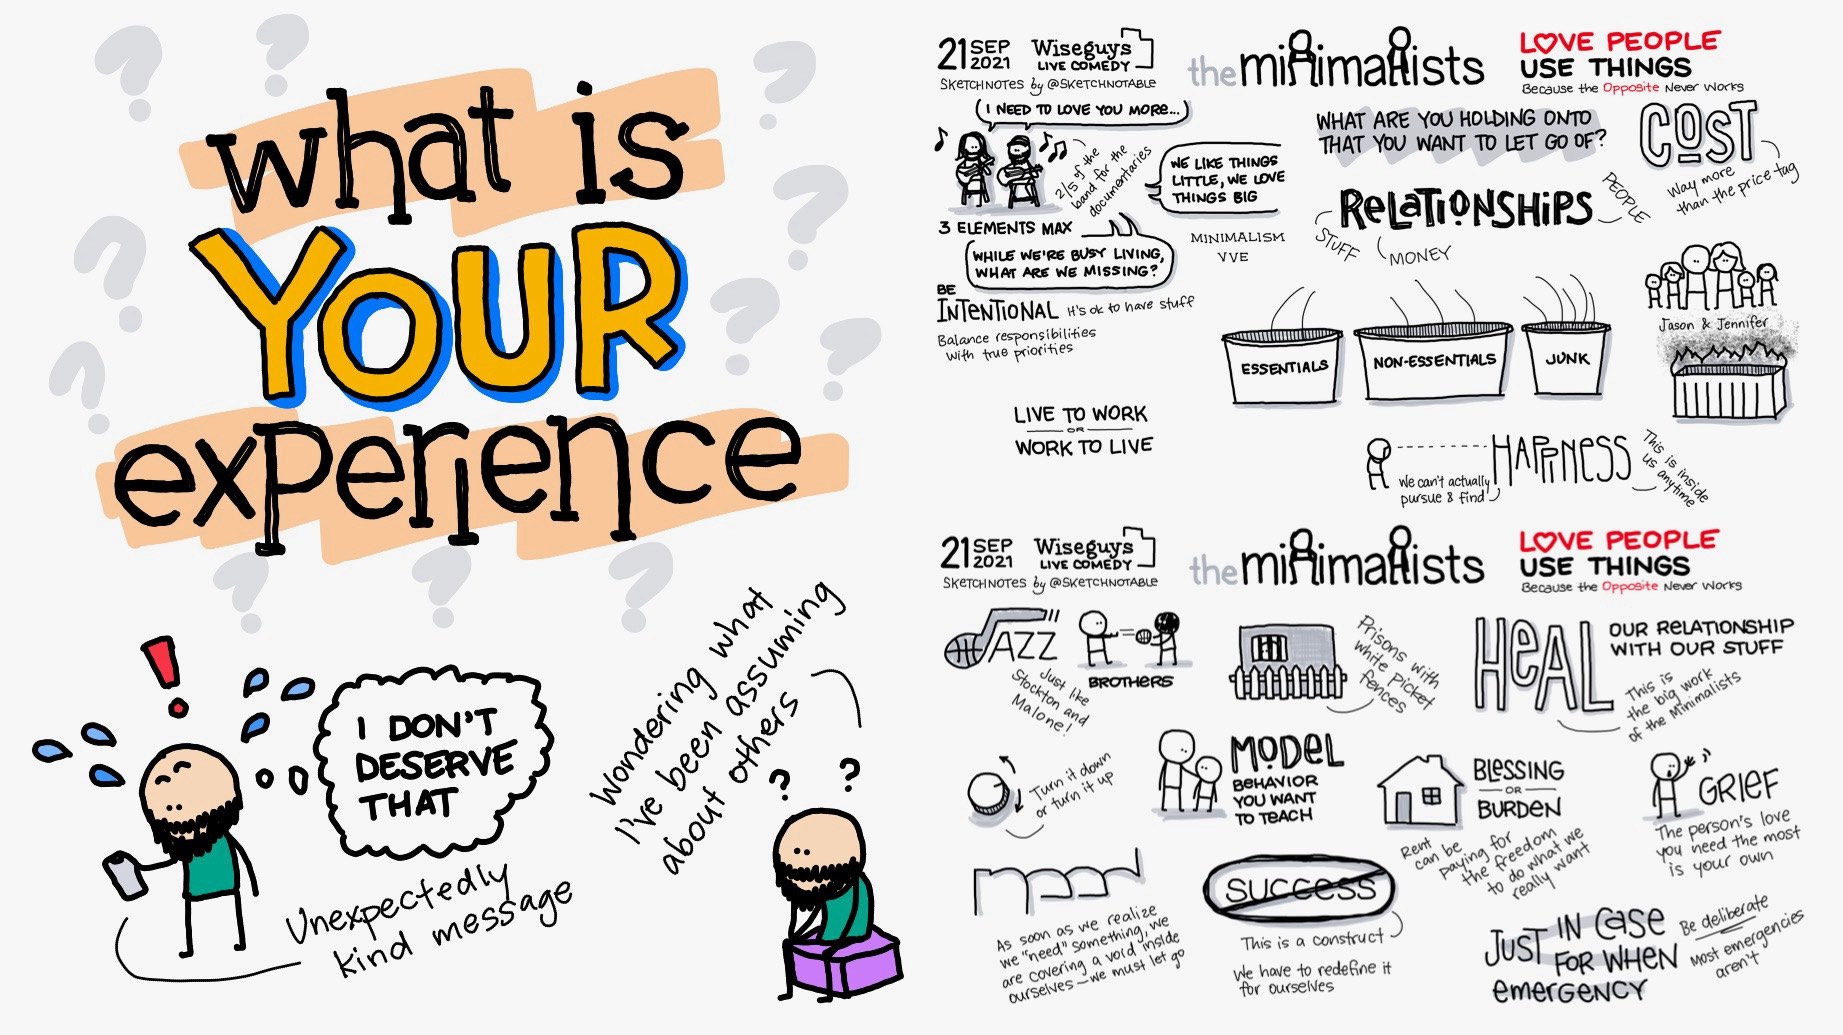 what is
YOUR
experience
I DON'T
DESERVE
THAT
Unexpectedly
kind message
Wondering what
I've been assuming
about others
?
?
21 SEP
2021
Wiseguys
LIVE COMEDY
SKETCHNOTES by @SKETCHNOTABLE
theminimalists
LOVE PEOPLE
USE THINGS
Because the Opposite Never Works
I NEED TO LOVE YOU MORE...
2/5 of the
band for the
documentaries
WE LIKE THINGS
LITTLE, WE LOVE
THINGS BIG
3 ELEMENTS MAX
WHILE WE'RE BUSY LIVING,
WHAT ARE WE MISSING?
MINIMALISM
VVE
BE
INTENTIONAL It's ok to have stuff
Balance responsibilities
with true priorities
LIVE TO WORK
OR
WORK TO LIVE
WHAT ARE YOU HOLDING ONTO
THAT YOU WANT TO LET GO OF?
COST
Way more
than the price tag
RELATIONSHIPS
PEOPLE
STUFF
MONEY
ESSENTIALS
NON-ESSENTIALS
JUNK
Jason & Jennifer
HAPPINESS
We can't actually
pursue & find
This is inside
us anytime
21 SEP
2021
Wiseguys
LIVE COMEDY
SKETCHNOTES by @SKETCHNOTABLE
theminimalists
LOVE PEOPLE
USE THINGS
Because the Opposite Never Works
JAZZ
Just like
Stockton and
Malone!
BROTHERS
Prisons with
white picket
fences
HEAL
OUR RELATIONSHIP
WITH OUR STUFF
This is
the big work
of the Minimalists
Turn it down
or turn it up
MODEL
BEHAVIOR
YOU WANT
TO TEACH
BLESSING
OR
BURDEN
Rent
can be
paying for
the freedom
to do what we
really want
GRIEF
The person's love
you need the most
is your own
need
As soon as we realize
we "need" something, we
are covering a void inside
ourselves—we must let go
SUCCESS
This is a construct
We have to redefine it
for ourselves
JUST IN CASE
FOR WHEN
EMERGENCY
Be deliberate
Most emergencies
aren't